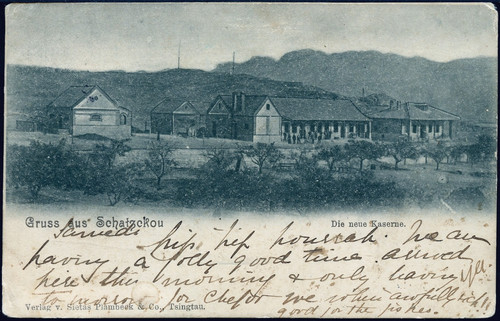 Gruss aus Schatzckou
Die neue Kaserne.
hip hep hourrah. We are
having a jolly good time arrived
here this morning & only having
to morrow for Chefoo we
good for the fishes.
Verlag v. Sietas Plambeck & Co., Tsingtau.